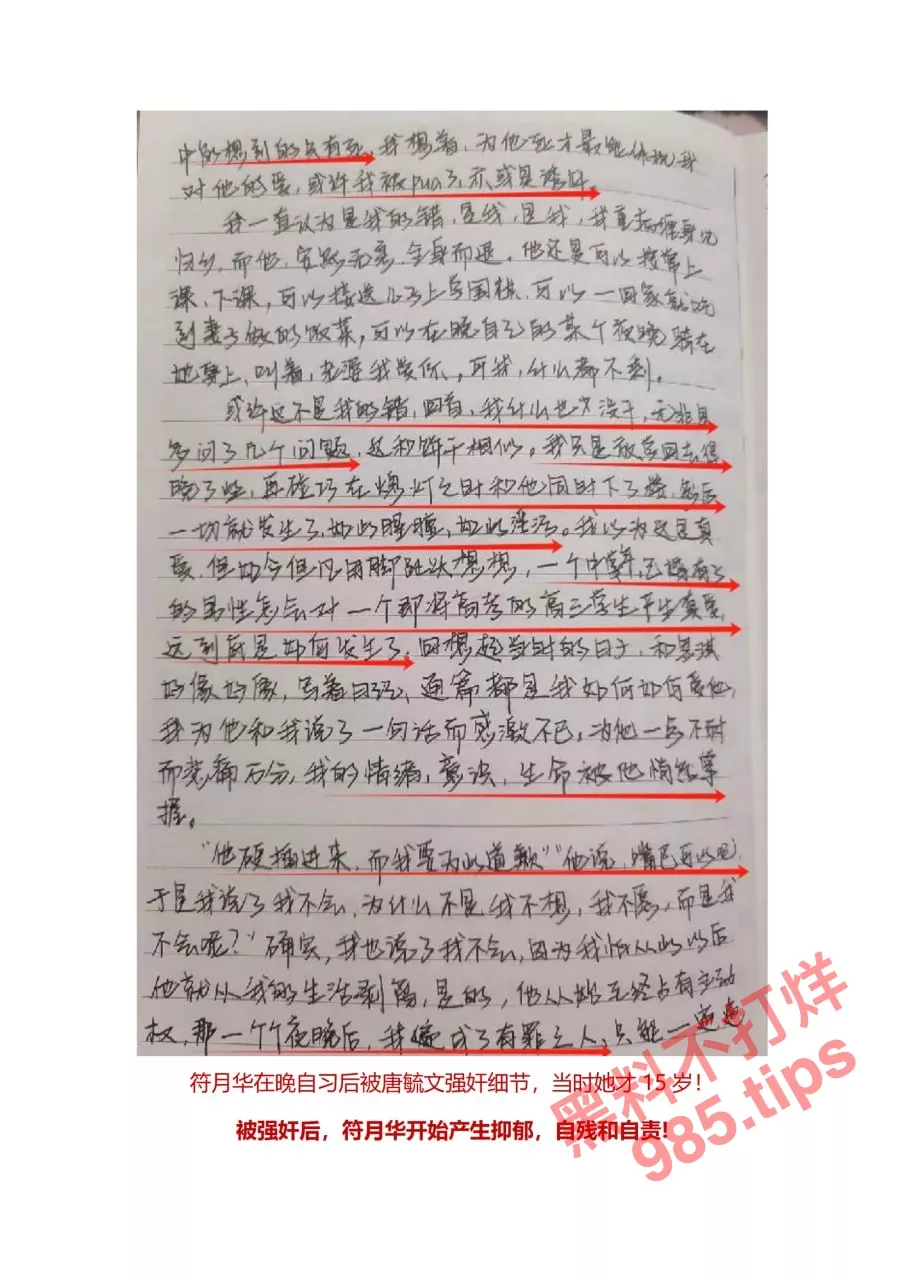 中的想到的只有死，我想着，为他死才最能体现我
对他的爱，或许我被pua了，亦或是诱奸。
我一直认为是我的错，是我，是我，我重病缠身
归乡，而他，安然无恙，全身而退。他还是可以按常上
课，下课，可以接送儿子上学围棋，可以一回家就吃
到妻子做的饭菜，可以在晚自习的某个夜晚骑在
她身上，叫着，老婆我爱你，可我，什么都不剩。
或许这不是我的错，回首，我什么也没干，无非是
多问了几个问题，这和饼干相似。我只是放学回去得
晚了些，再碰巧在熄灯之时和他同时下了楼，然后
一切就发生了，如此腥膻，如此淫污。我以为这是真
爱，但如今但凡用脚趾头想想，一个中年，已婚有子
的男性怎会对一个即将高考的高三学生产生真爱，
这到底是如何发生了，回想起当时的日子，和思琪
好像好像，写着日记，通篇都是我如何如何爱他，
我为他和我说了一句话而感激不已，为他一点不耐
而悲痛万分，我的情绪，意识，生命被他悄然掌
握。
“他硬插进来，而我要为此道歉”“他说，嘴巴可以吧，
于是我说了我不会，为什么不是我不想，我不愿，而是我
不会呢？”确实，我也说了我不会，因为我怕从此以后
他就从我的生活剥离，是的，他从始至终占有主动
权，那一个个夜晚后，我便成了有罪之人，只能一遍遍
符月华在晚自习后被唐毓文强奸细节，当时她才 15 岁！
被强奸后，符月华开始产生抑郁，自残和自责！
黑料不打烊
985.tips